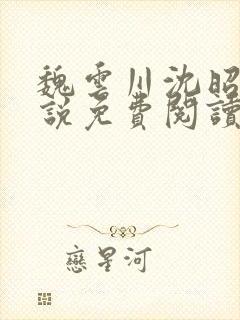 魏雲川沈昭
說免費閱讀
戀星河